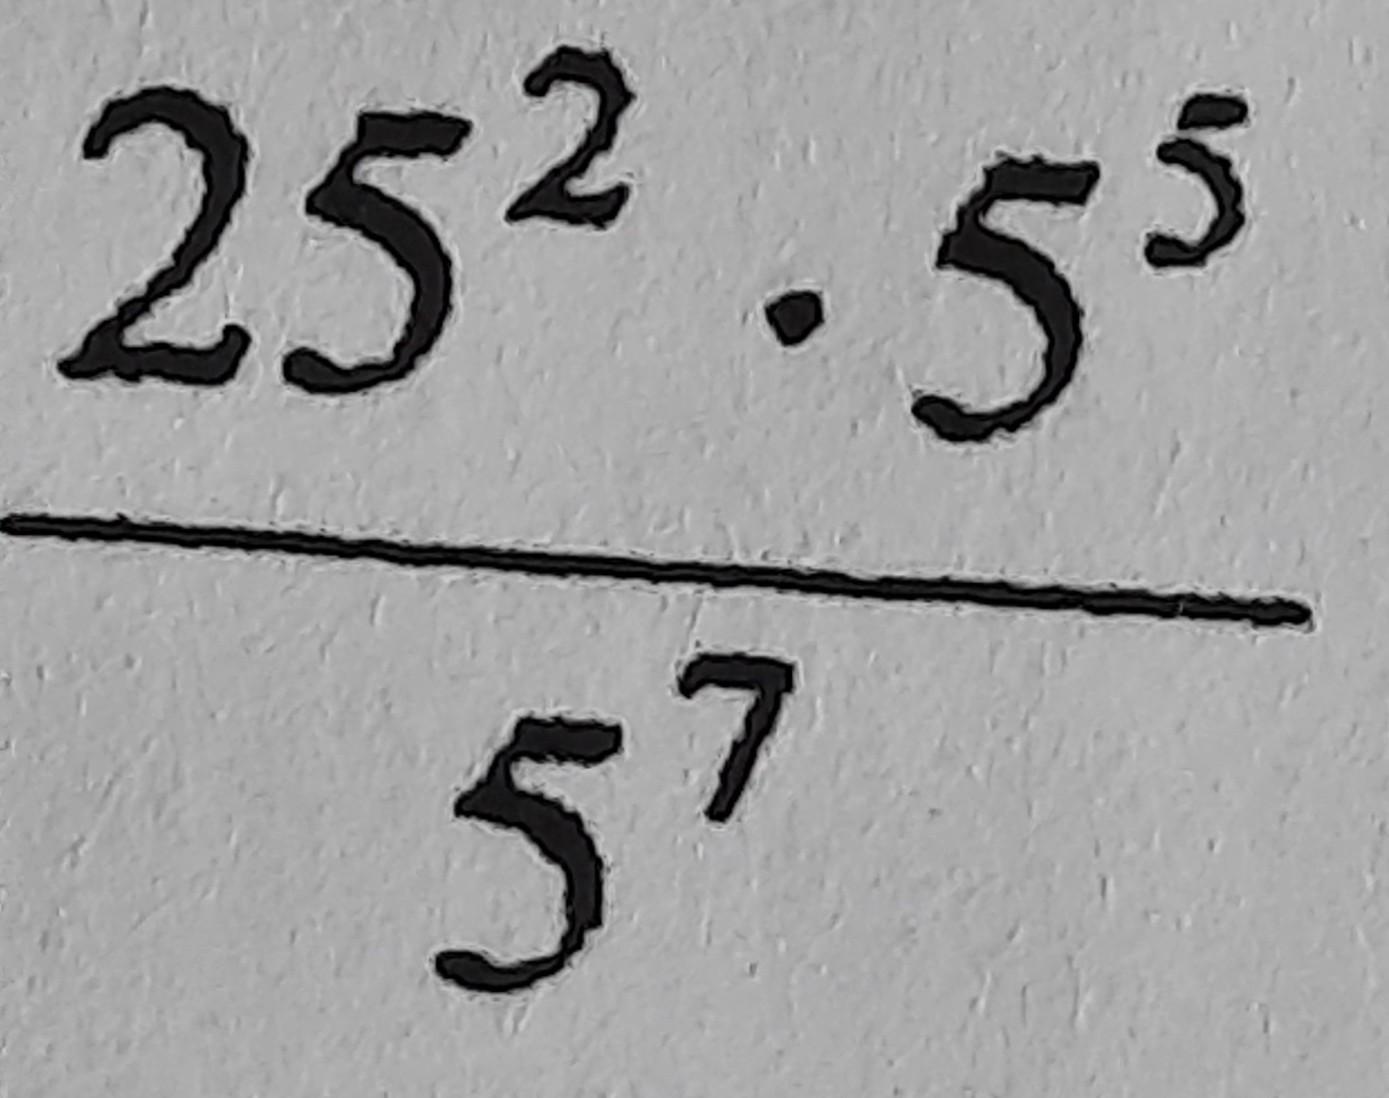 25² · 5⁵
5⁷